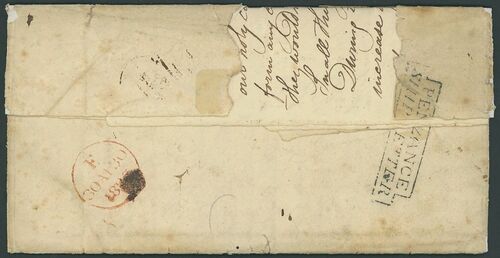 our holy
form any
They would
Small thi
During
increase
PENZANCE
SHIP LETTER
F
30 AU 30
18